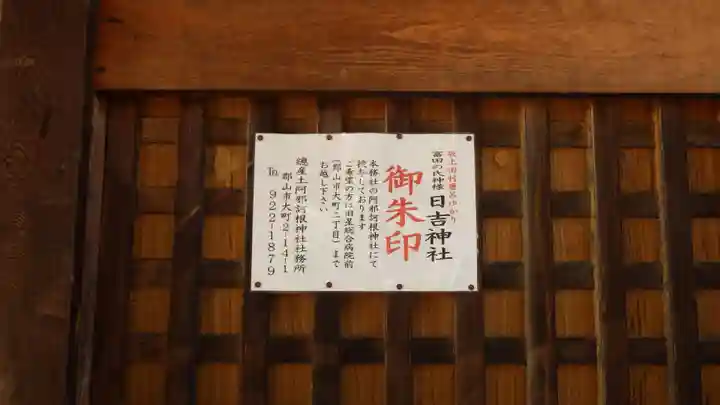 坂上田村麿呂ゆかり
富田の氏神様
日吉神社
御朱印
本務社の阿邪訶根神社にて
授与しております
ご希望の方に旧星総合病院前
(郡山市大町二丁目)まで
お越し下さい
總産土阿邪訶根神社社務所
郡山市大町2-14-1
℡ 922-1879